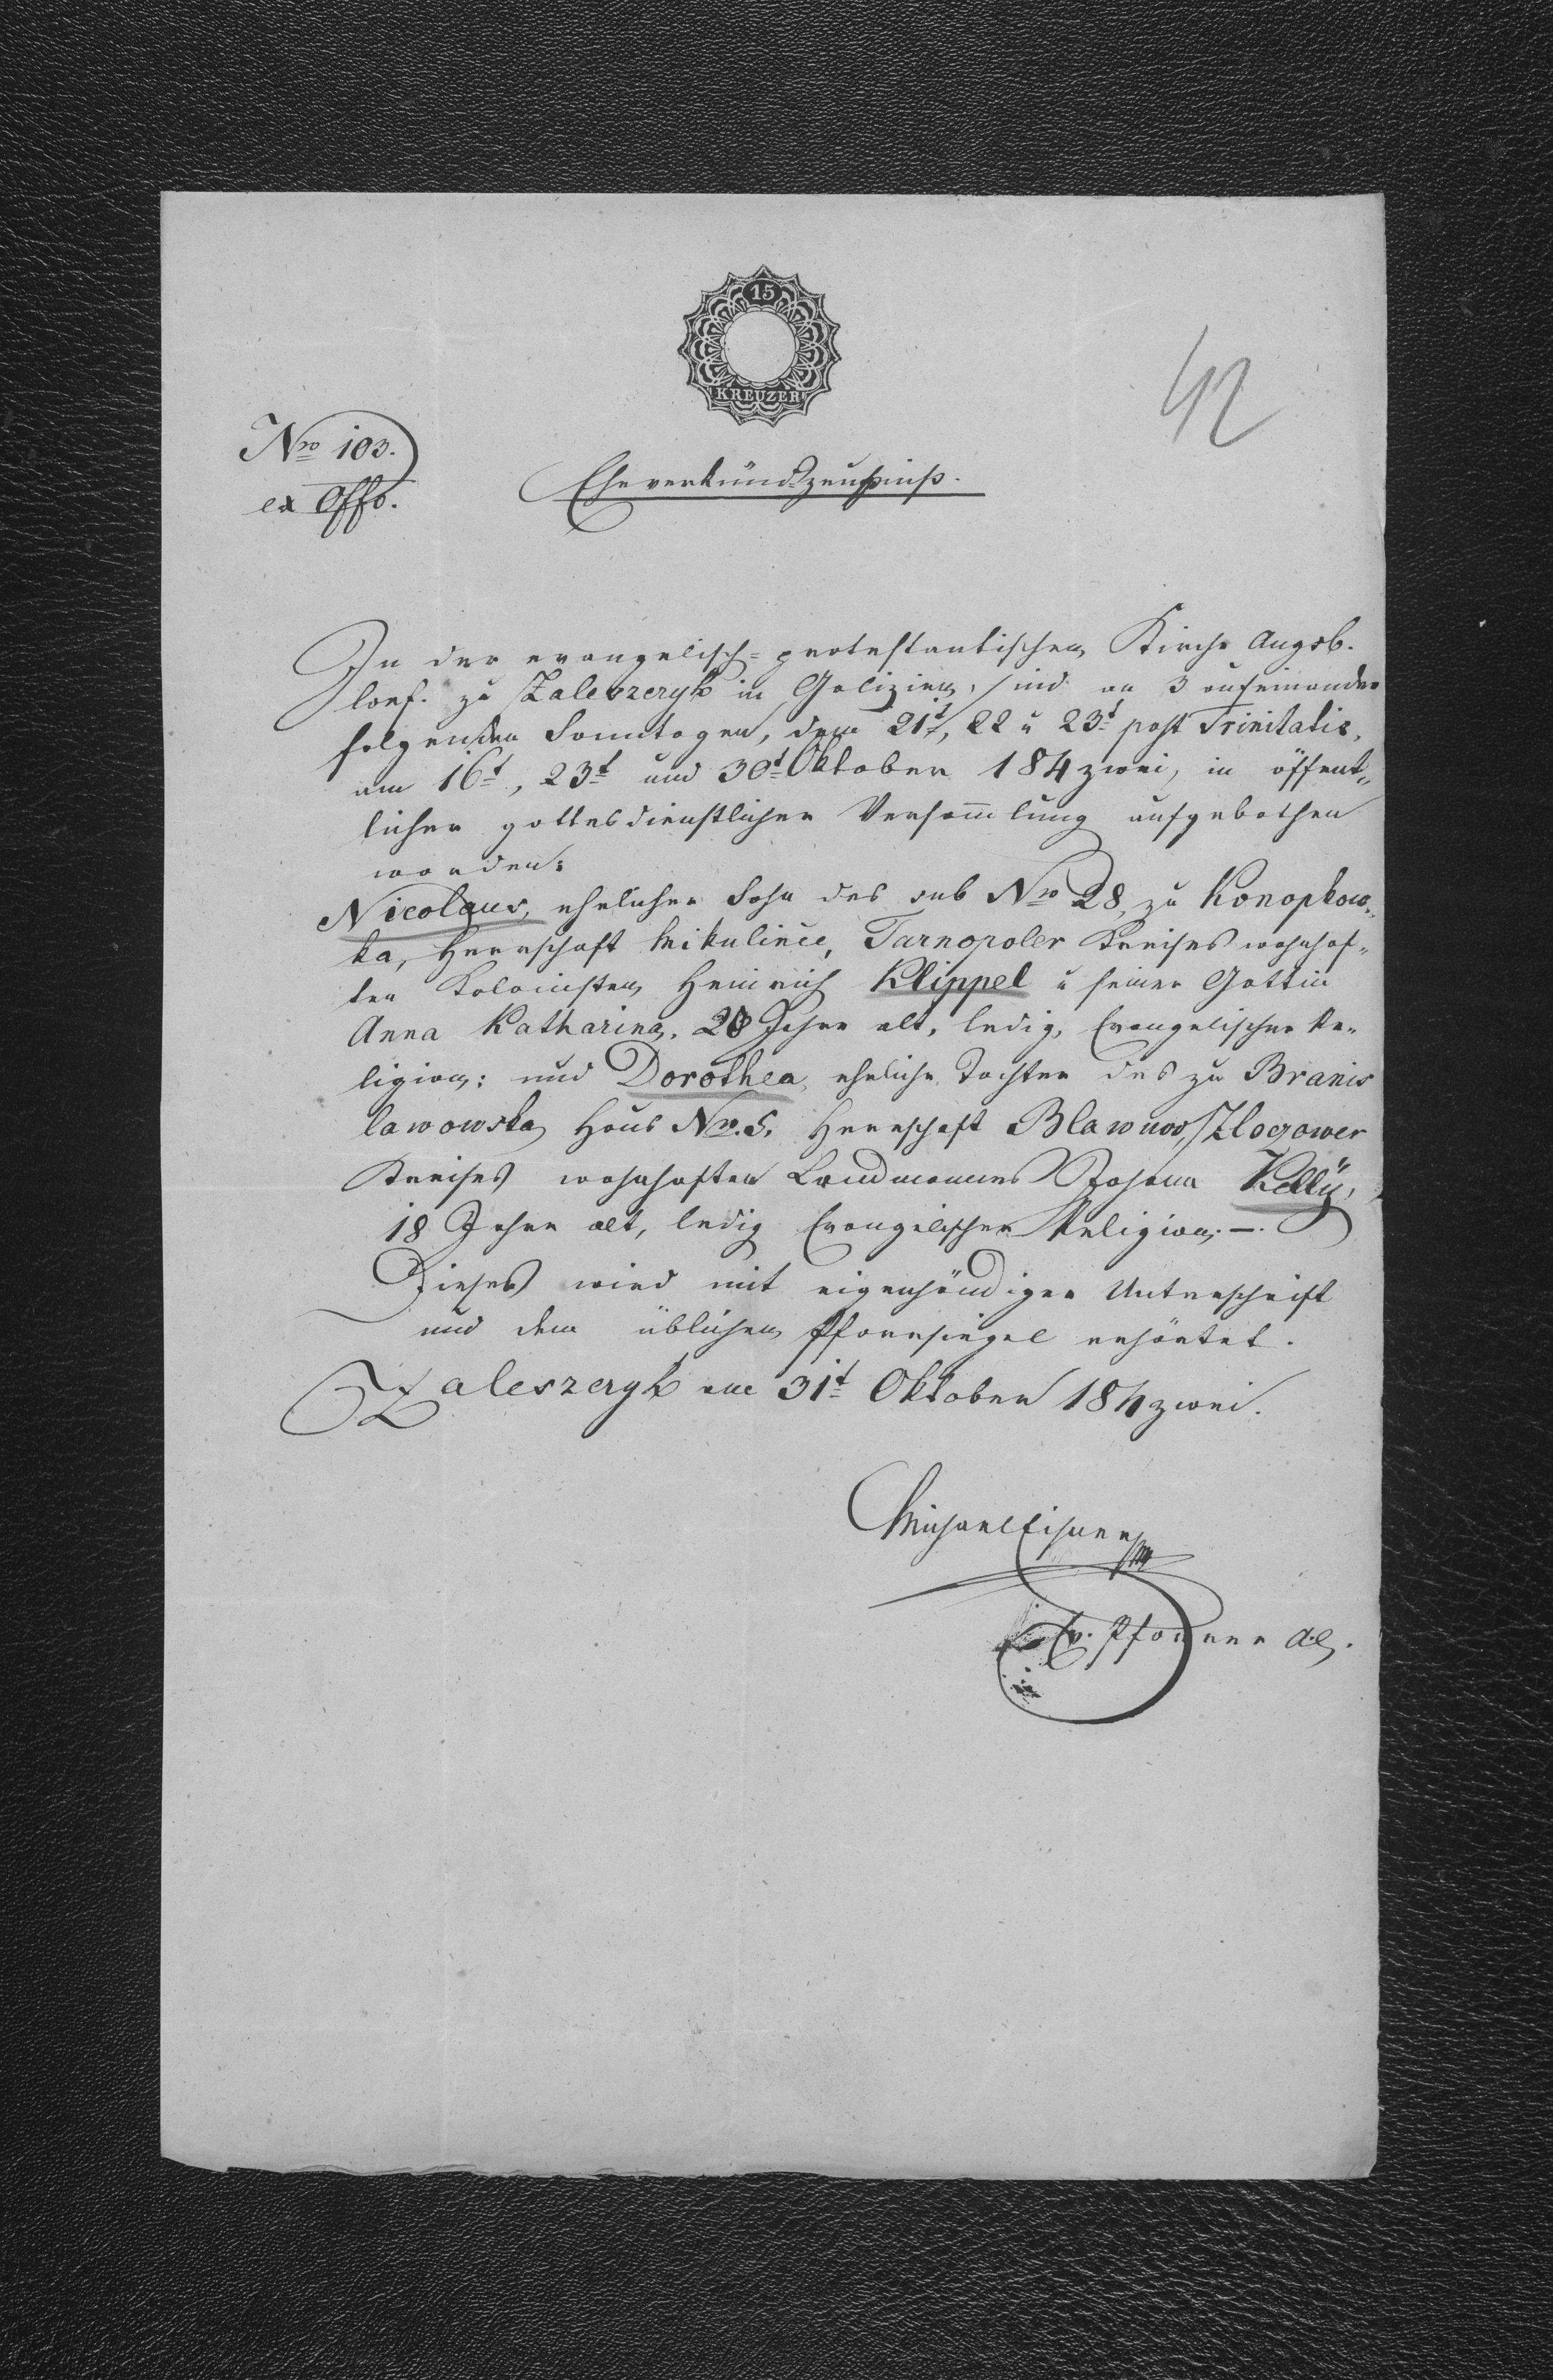 15
KREUZER
42
Nro 103.
ex Offo.
Eheverkündzeugniß.
In der evangelisch-protestantischen Kirche Augsb.
Conf. zu Zaleszczyk in Galizien, sind an 3 aufeinander
folgenden Sonntagen, dem 21t, 22 u 23t post Trinitatis,
am 16t, 23t und 30t Oktober 184zwei, in öffent„
licher gottesdienstlicher Versam̅lung aufgebothen
worden:
Nicolaus, ehelicher Sohn des sub Nro 28, zu Konopkow„
ka, Herrschaft Mikulince, Tarnopoler Kreises wohnhaf„
ten Kolonisten Heinrich Klippel u seiner Gattin
Anna Katharina, Jahre alt, ledig, Evangelischer Re„
ligion: und Dorothea, eheliche Tochter des zu Branis
lawowska Haus Nro. 5. Herrschaft
Kreises wohnhaften Landmannes Johann Kelly,
18 Jahre alt, ledig Evangelischer Religion. —.
Dieses wird mit eigenhändiger Unterschrift
und dem üblichen Pfarrsiegel erhärtet.
Zaleszczyk am 31t Oktober 184zwei.
Michael
Ev. Pfarrer A.C.